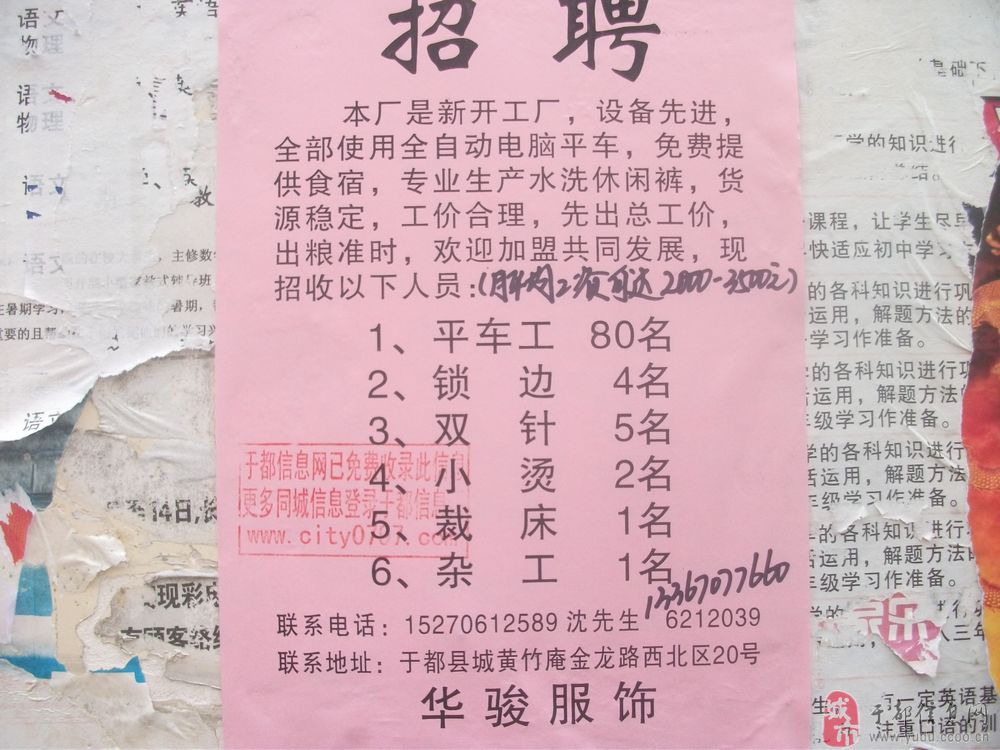 招 聘
本厂是新开工厂，设备先进，
全部使用全自动电脑平车，免费提
供食宿，专业生产水洗休闲裤，货
源稳定，工价合理，先出总工价，
出粮准时，欢迎加盟共同发展，现
招收以下人员：(月平均工资可达2000-3500元)
1、平车工 80名
2、锁 边 4名
3、双 针 5名
4、小 烫 2名
5、裁 床 1名
6、杂 工 1名
13367077660
联系电话：15270612589 沈先生 6212039
联系地址：于都县城黄竹庵金龙路西北区20号
华骏服饰
于都信息网已免费收录此信息
更多同城信息登录于都信息
www.city0797.com
语文
物理
语文
物理
语文
语文
主修数
班
暑期，
在暑期学习
重要的且帮
学习兴
语文
14日,
现彩
有顾客络
基础
学的知识进行
总结
课程，让学生尽早
快适应初中学习
的各科知识进行巩
运用，解题方法的
学习作准备。
的各科知识进行巩
运用，解题方法的
年级学习作准备。
学的各科知识进行
活运用，解题方法
年级学习作准备。
的各科知识进行
活运用，解题方法
年级学习作准备。
乐
人三年
有一定英语基
注重口语的训
城市
于都信息网
www.yudu.ccoo.cn